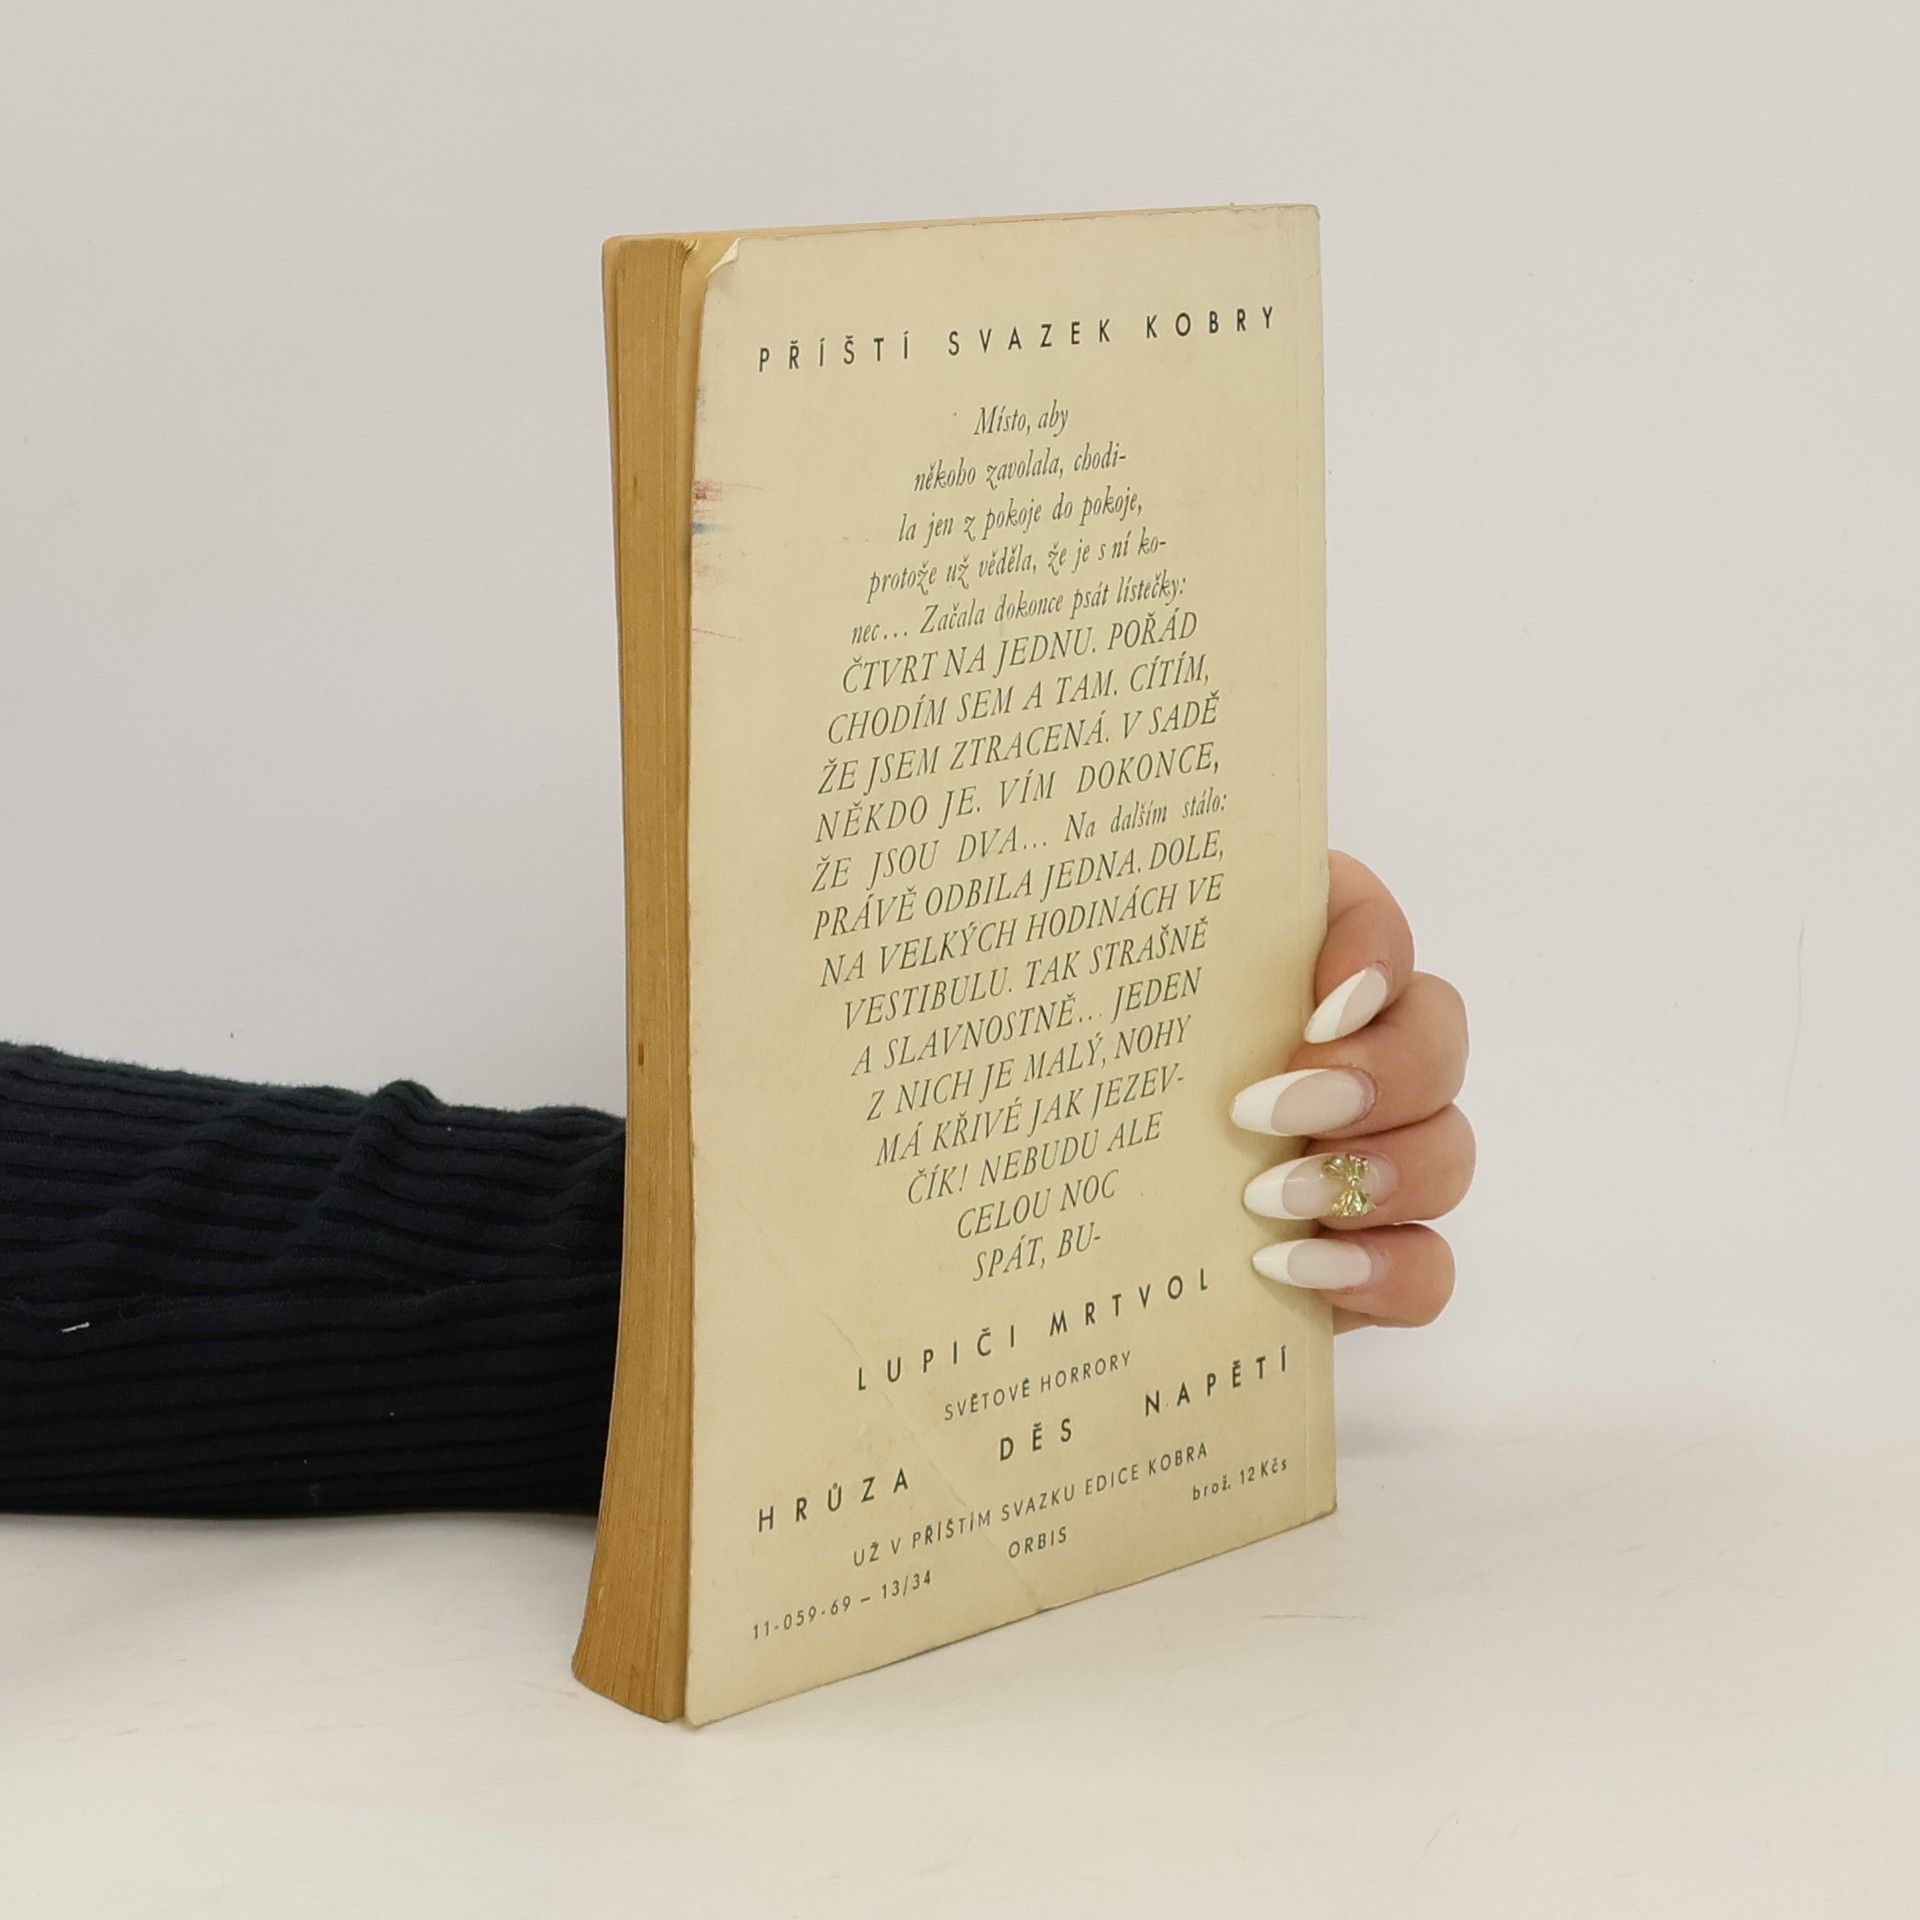 PŘÍŠTÍ SVAZEK KOBRY
Místo, aby
někoho zavolala, chodi-
la jen z pokoje do pokoje,
protože už věděla, že je s ní ko-
nec... Začala dokonce psát lístečky:
ČTVRT NA JEDNU. POŘÁD
CHODÍM SEM A TAM. CÍTÍM,
ŽE JSEM ZTRACENÁ. V SADĚ
NĚKDO JE. VÍM DOKONCE,
ŽE JSOU DVA... Na dalším stálo:
PRÁVĚ ODBILA JEDNA. DOLE,
NA VELKÝCH HODINÁCH VE
VESTIBULU. TAK STRAŠNĚ
A SLAVNOSTNĚ... JEDEN
Z NICH JE MALÝ, NOHY
MÁ KŘIVÉ JAK JEZEV-
ČÍK! NEBUDU ALE
CELOU NOC
SPÁT, BU-
LUPIČI MRTVOL
SVĚTOVÉ HORRORY
HRŮZA DĚS NAPĚTÍ
UŽ V PŘÍŠTÍM SVAZKU EDICE KOBRA
ORBIS
11-059-69 – 13/34
brož. 12 Kčs